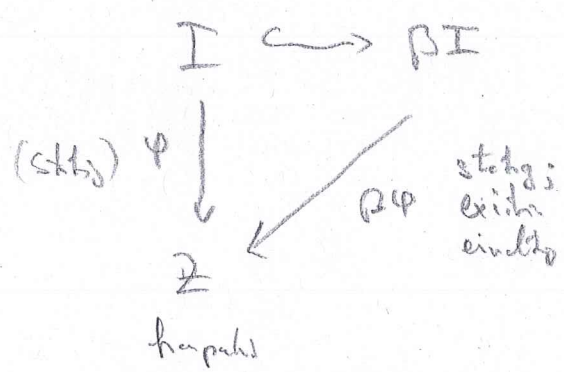 I ↪ βI
(stetig) φ
βφ
stetig;
existiert
eindeutig
Z
kompakt